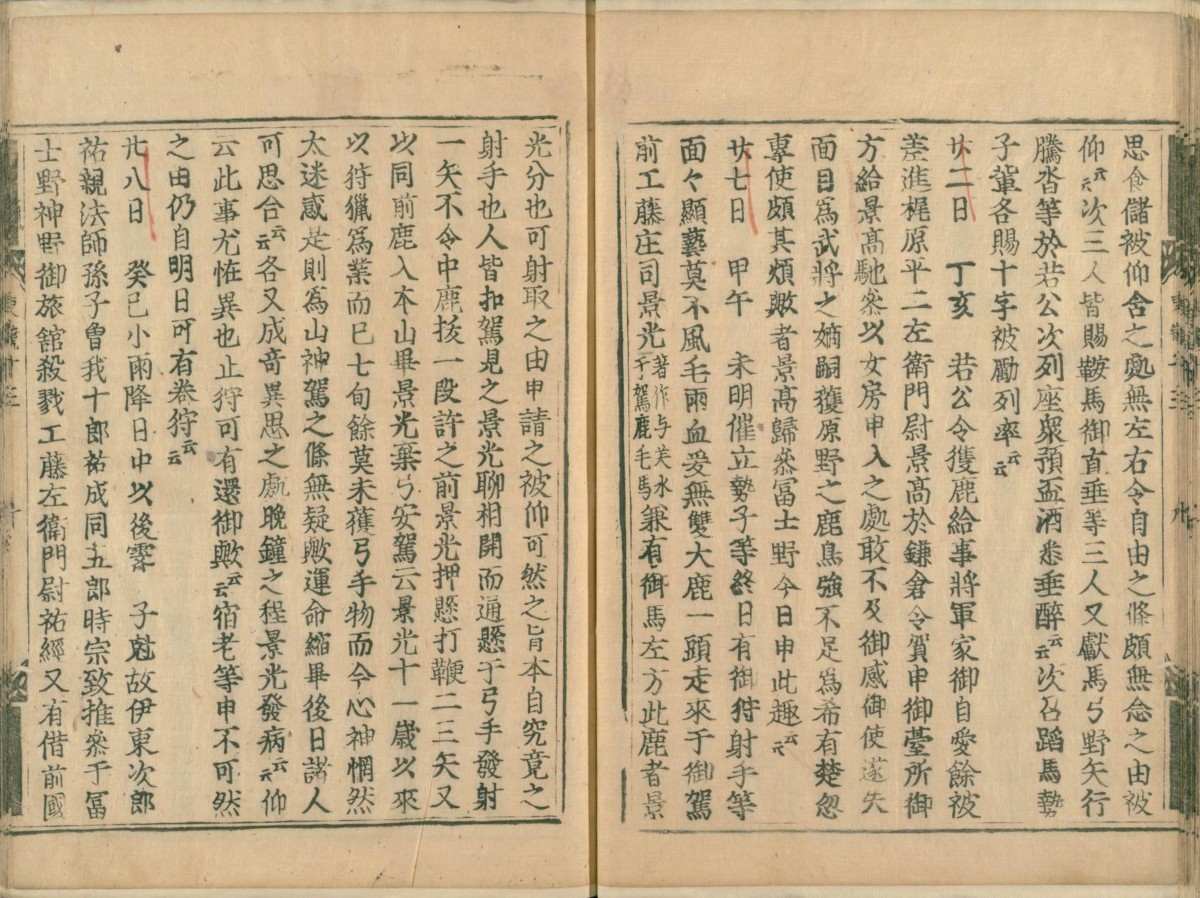 思食儲被仰含之處無左右令自由之條頗無念之由被
仰云々次三人皆賜鞍馬御直垂等三人又獻馬弓野矢行
騰沓等於若公次列座衆預盃酒悉垂醉云々次召蹈馬勢
子輩各賜十字被勵列率云々
廿二日　丁亥　若公令獲鹿給事將軍家御自愛餘被
差進梶原平二左衛門尉景高於鎌倉令賀申御臺所御
方給景高馳參以女房申入之處敢不及御感御使還失
面目爲武將之嫡嗣獲原野之鹿鳥強不足爲希有楚忽
專使頗其煩歟者景高歸參冨士野今日申此趣云々
廿七日　甲午　未明催立勢子等終日有御狩射手等
面々顯藝莫不風毛雨血爰無雙大鹿一頭走來于御駕
前工藤庄司景光著作与美水干駕鹿毛馬兼有御馬左方此鹿者景
光分也可射取之由申請之被仰可然之旨本自究竟之
射手也人皆扣駕見之景光聊相開而通懸于弓手發射
一矢不令中鹿拔一段許之前景光押懸打鞭二三矢又
以同前鹿入本山畢景光棄弓安駕云景光十一歳以來
以狩獵爲業而已七旬餘莫未獲弓手物而今心神惘然
太迷惑是則爲山神駕之條無疑歟運命縮畢後日諸人
可思合云々各又成奇異思之處晩鐘之程景光發病云々仰
云此事尤恠異也止狩可有還御歟云々宿老等申不可然
之由仍自明日可有卷狩云々
廿八日　癸巳小雨降日中以後霽　子尅故伊東次郎
祐親法師孫子曽我十郎祐成同五郎時宗致推參于冨
士野神野御旅館殺戮工藤左衛門尉祐經又有備前國